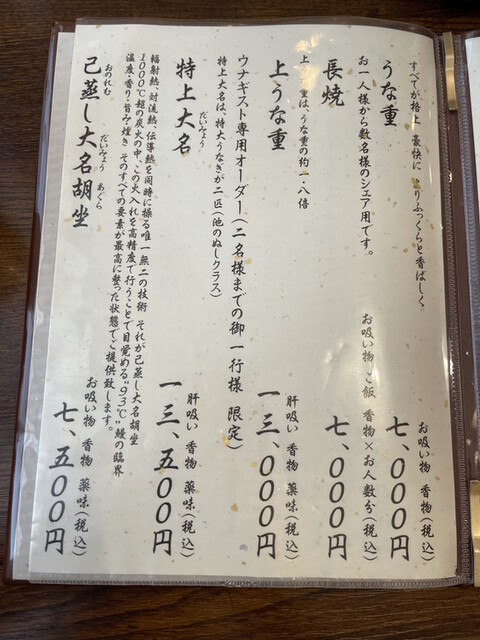 すべてが格上 豪快に よりふっくらと香ばしく
うな重
お吸い物 香物(税込)
七、〇〇〇円
お一人様から数名様のシェア用です。
長焼
お吸い物 ご飯 香物×お人数分(税込)
七、〇〇〇円
上うな重は、うな重の約一・八倍
上うな重
肝吸い 香物 薬味(税込)
一三、〇〇〇円
ウナギスト専用オーダー(二名様までの御一行様 限定)
特上大名は、特大うなぎが二匹(池のぬしクラス)
特上大名
だいみょう
肝吸い 香物 薬味(税込)
一三、五〇〇円
輻射熱、対流熱、伝導熱を同時に操る唯一無二の技術 それが己蒸し大名胡坐
1000℃超の炭火の中、この火入れを高精度で行うことで目覚める“93℃”鰻の臨界
温度・香り・旨み・煌き そのすべての要素が最高に整った状態でご提供致します。
己蒸し大名胡坐
おのれむ だいみょう あぐら
お吸い物 香物 薬味(税込)
七、五〇〇円